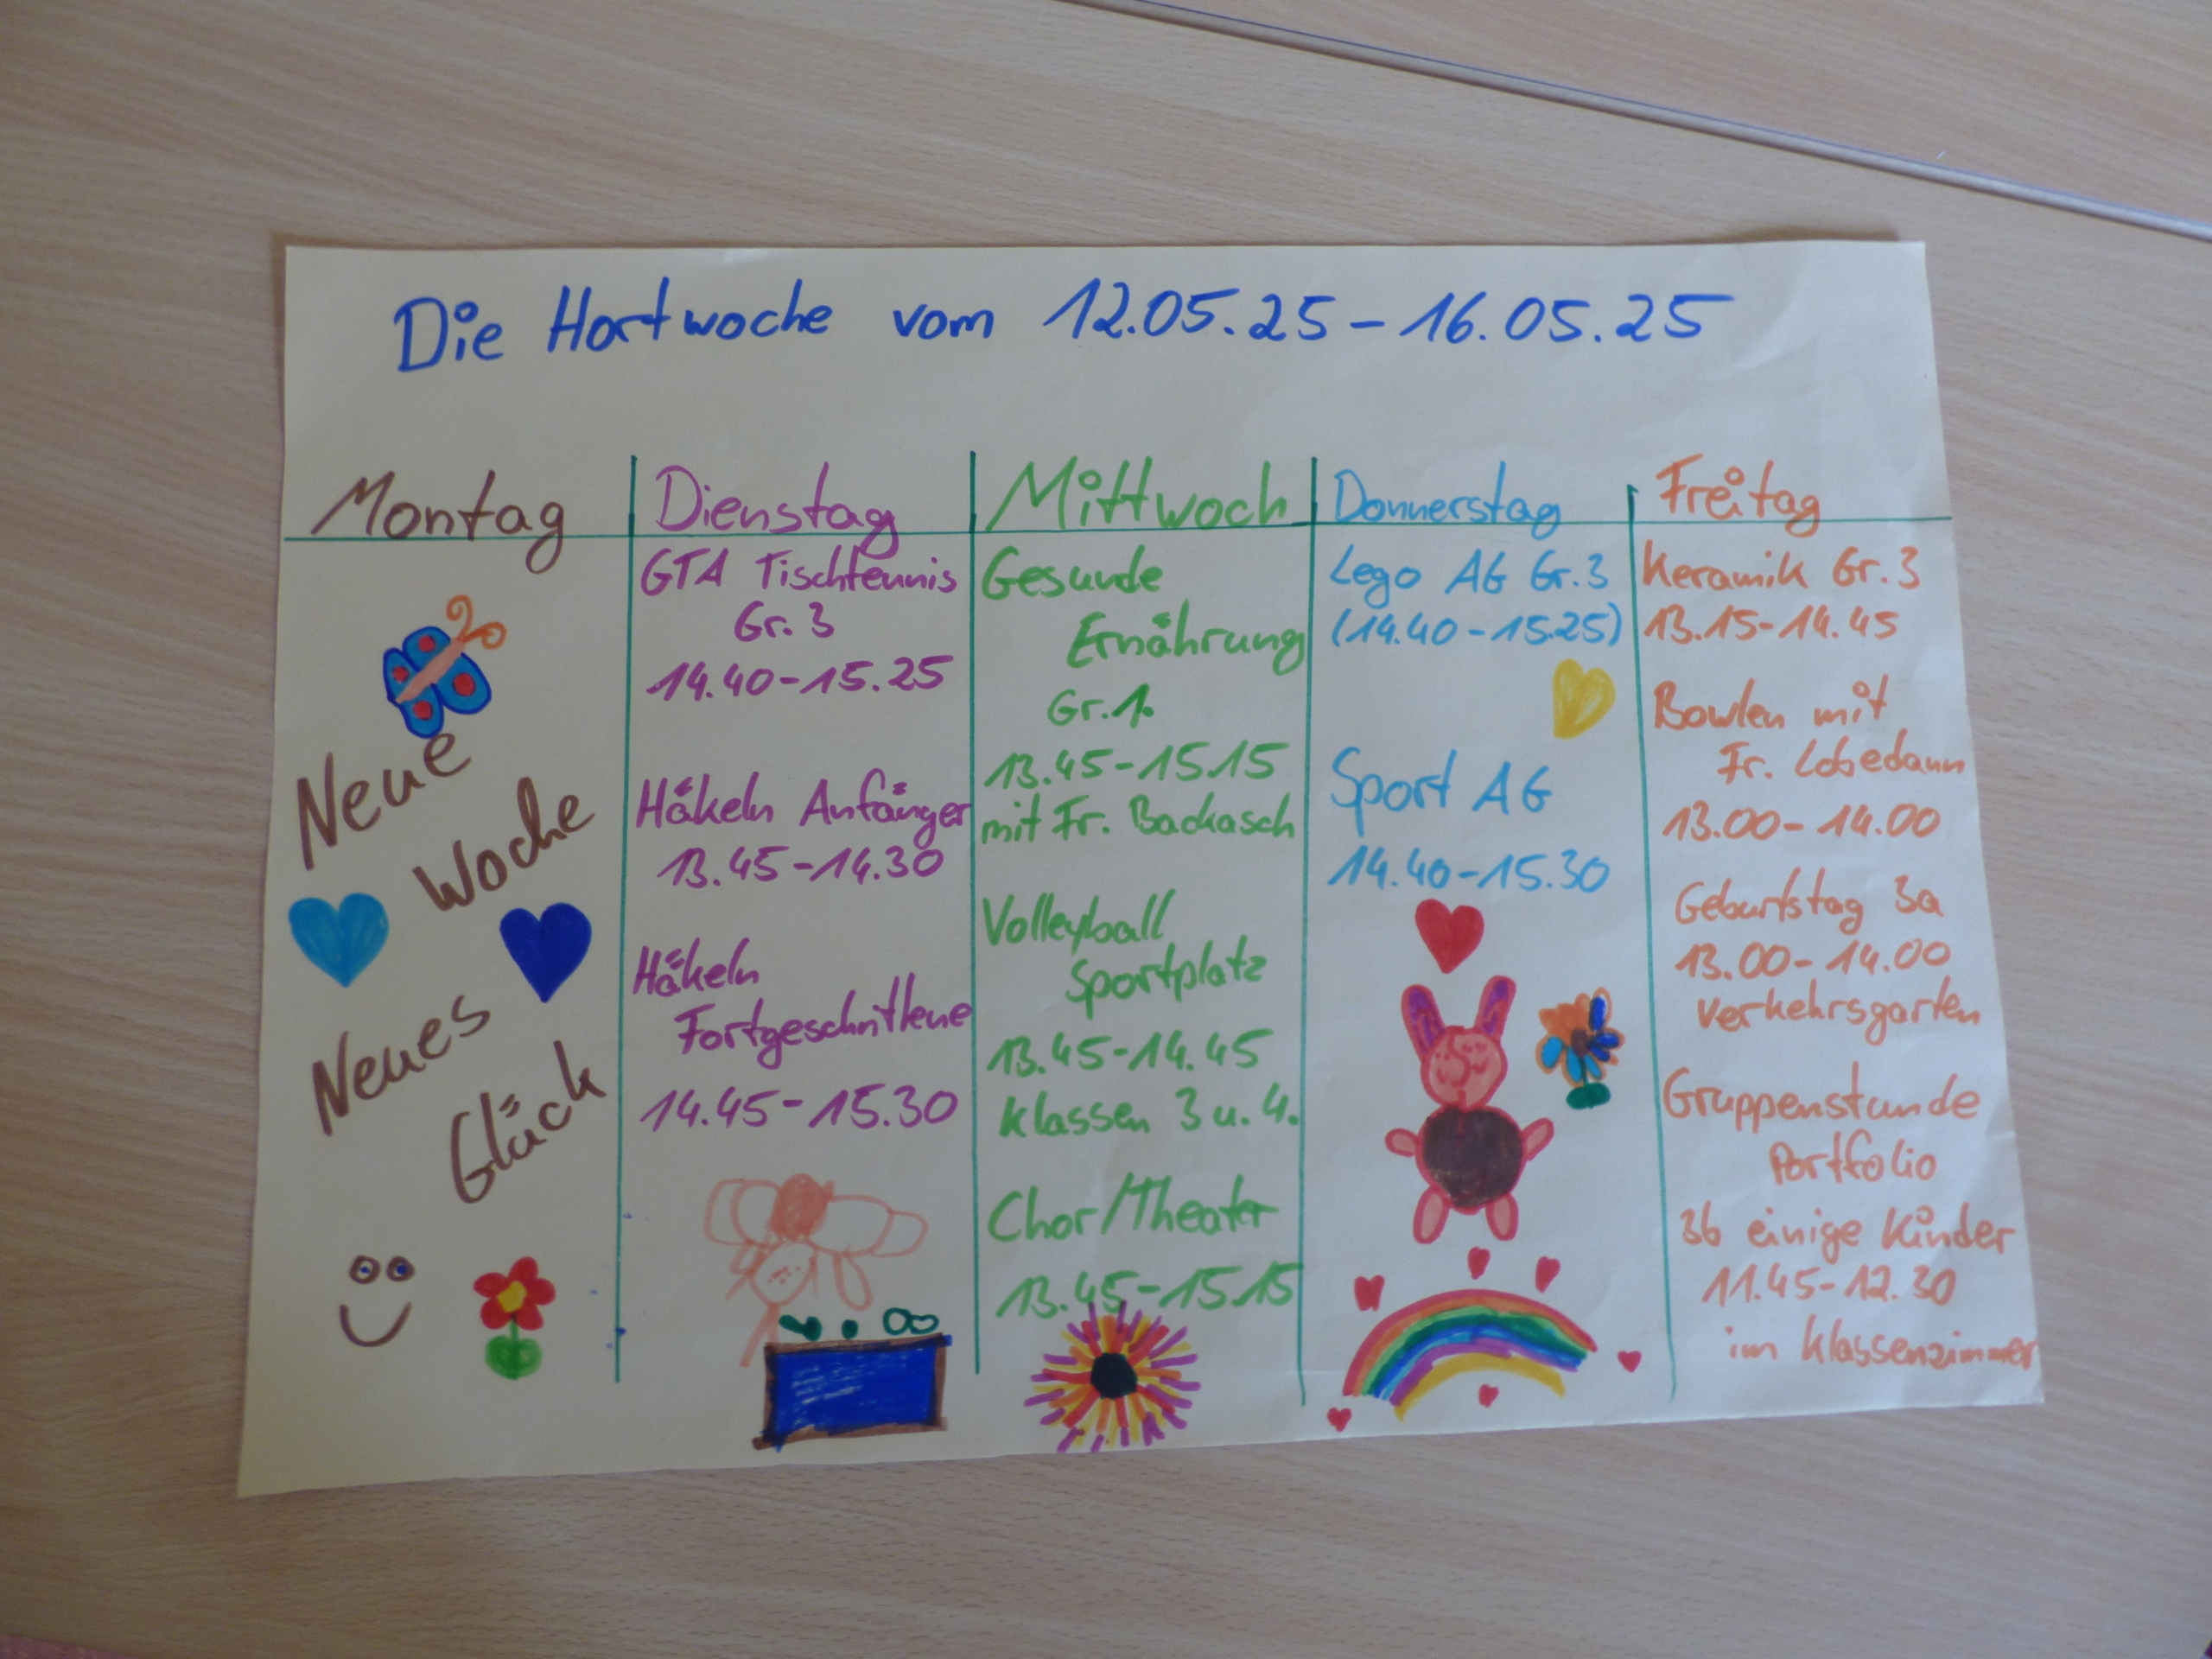 Die Hortwoche vom 12.05.25-16.05.25
Montag
Neue
Woche
Neues
Glück
Dienstag
GTA Tischtennis
Gr. 3
14.40-15.25
Häkeln Anfänger
13.45-14.30
Häkeln
Fortgeschrittene
14.45-15.30
Mittwoch
Gesunde
Ernährung
Gr. 1.
13.45-15.15
mit Fr. Backasch
Volleyball
Sportplatz
13.45-14.45
Klassen 3 u. 4.
Chor/Theater
13.45-15.15
Donnerstag
Lego AG Gr. 3
(14.40-15.25)
Sport AG
14.40-15.30
Freitag
Keramik Gr. 3
13.15-14.45
Bowlen mit
Fr. Lobedann
13.00-14.00
Geburtstag 3a
13.00-14.00
Verkehrsgarten
Gruppenstunde
Portfolio
3b einige Kinder
11.45-12.30
im Klassenzimmer